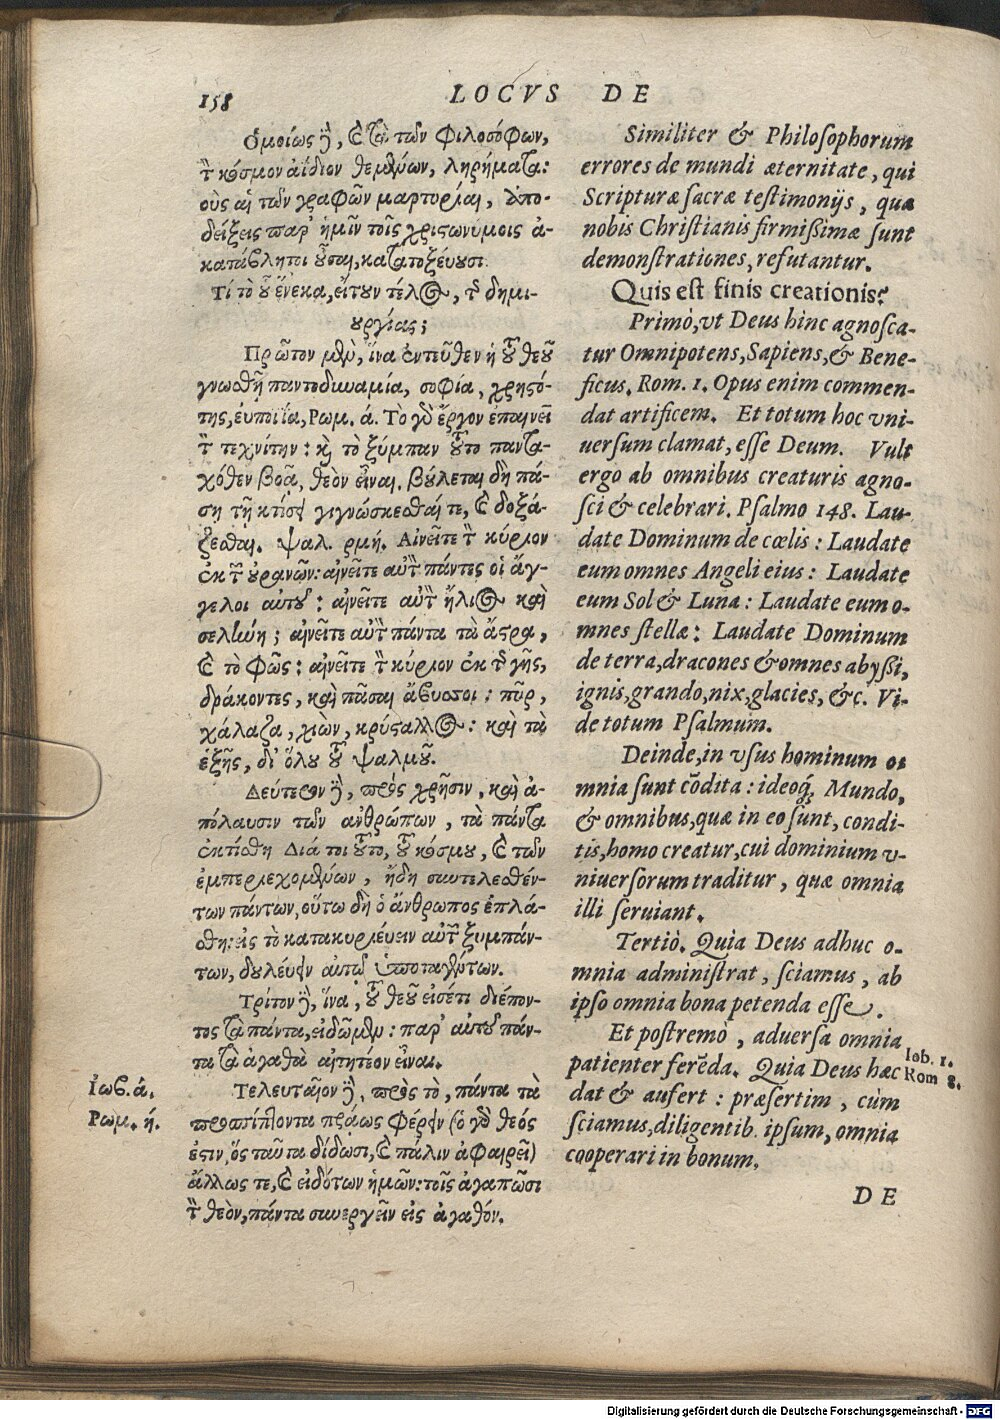 158 LOCVS DE
Ὁμοίως δὲ, καὶ τὰ τῶν Φιλοσόφων,
τὸν κόσμον ἀΐδιον θεμένων, ληρήματα:
οὓς αἱ τῶν γραφῶν μαρτυρίαι, ἀπο-
δείξεις παρ' ἡμῖν τοῖς χριστωνύμοις ἀ-
κατάβλητοι οὖσαι, κατατοξέυουσι.
Τί τὸ οὗ ἕνεκα, εἴτουν τέλος, τῆς δημι-
ουργίας;
Πρῶτον μὲν, ἵνα ἐντεῦθεν ἡ τοῦ θεοῦ
γνωσθῇ παντοδυναμία, σοφία, χρηστό-
της, ἐυποιΐα, Ρωμ. ά. Τὸ γὰρ ἔργον ἐπαινεῖ
τὸν τεχνίτην: καὶ τὸ ξύμπαν τοῦτο παντα-
χόθεν βοᾷ, θεὸν εἶναι. βούλεται δὴ πά-
ση τῇ κτίσει γιγνώσκεσθαί τε, καὶ δοξά-
ζεσθαι. ψαλ. ρμή. Αἰνεῖτε τὸν κύριον
ἐκ τῶν οὐρανῶν: αἰνεῖτε αὐτὸν πάντες οἱ ἄγ-
γελοι αὐτοῦ: αἰνεῖτε αὐτὸν ἥλιος καὶ
σελήνη; αἰνεῖτε αὐτὸν πάντα τὰ ἄστρα,
καὶ τὸ φῶς: αἰνεῖτε τὸν κύριον ἐκ τῆς γῆς,
δράκοντες, καὶ πᾶσαι ἄβυσσοι: πῦρ,
χάλαζα, χιὼν, κρύσταλλος: καὶ τὰ
ἑξῆς, δι' ὅλου τοῦ ψαλμοῦ.
Δεύτερον δὲ, πρὸς χρῆσιν, καὶ ἀ-
πόλαυσιν τῶν ἀνθρώπων, τὰ πάντα
ἐκτίσθη Διά τοι τοῦτο, τοῦ κόσμου, καὶ τῶν
ἐμπεριεχομένων, ἤδη συντελεσθέν-
των πάντων, οὕτω δὴ ὁ ἄνθρωπος ἐπλά-
σθη: εἰς τὸ κατακυριέυειν αὐτὸν ξυμπάν-
των, δουλέυειν αὐτῷ ὑποταγέντων.
Τρίτον δὲ, ἵνα, τοῦ θεοῦ εἰσέτι διέπον-
τος τὰ πάντα, εἰδῶμεν: παρ' αὐτοῦ πάν-
τα τὰ ἀγαθὰ αἰτητέον εἶναι.
Ἰωβ. ά. Τελευταῖον δὲ, πρὸς τὸ, πάντα τὰ
Ρωμ. ή. προσπίπτοντα πράως φέρειν (ὁ γὰρ θεός
ἐστιν, ὅς ταῦτα δίδωσι, καὶ πάλιν ἀφαιρεῖ)
ἄλλως τε, καὶ εἰδότων ἡμῶν: τοῖς ἀγαπῶσι
τὸν θεὸν, πάντα συνεργεῖν εἰς ἀγαθόν.
Similiter & Philosophorum
errores de mundi æternitate, qui
Scripturæ sacræ testimonijs, quæ
nobis Christianis firmißimæ sunt
demonstrationes, refutantur.
Quis est finis creationis?
Primò, vt Deus hinc agnosca-
tur Omnipotens, Sapiens, & Bene-
ficus. Rom. 1. Opus enim commen-
dat artificem. Et totum hoc vni-
uersum clamat, esse Deum. Vult
ergo ab omnibus creaturis agno-
sci & celebrari. Psalmo 148. Lau-
date Dominum de cœlis: Laudate
eum omnes Angeli eius: Laudate
eum Sol & Luna: Laudate eum o-
mnes stellæ: Laudate Dominum
de terra, dracones & omnes abyßi,
ignis, grando, nix, glacies, &c. Vi-
de totum Psalmum.
Deinde, in vsus hominum o
mnia sunt cõdita: ideoq́; Mundo,
& omnibus, quæ in eo sunt, condi-
tis, homo creatur, cui dominium v-
niuersorum traditur, quæ omnia
illi seruiant.
Tertiò. Quia Deus adhuc o-
mnia administrat, sciamus, ab
ipso omnia bona petenda esse.
Et postremò, aduersa omnia
patienter ferẽda. Quia Deus hæc Iob. 1.
dat & aufert: præsertim, cùm Rom 8.
sciamus, diligentib. ipsum, omnia
cooperari in bonum.
DE
Digitalisierung gefördert durch die Deutsche Forschungsgemeinschaft - DFG